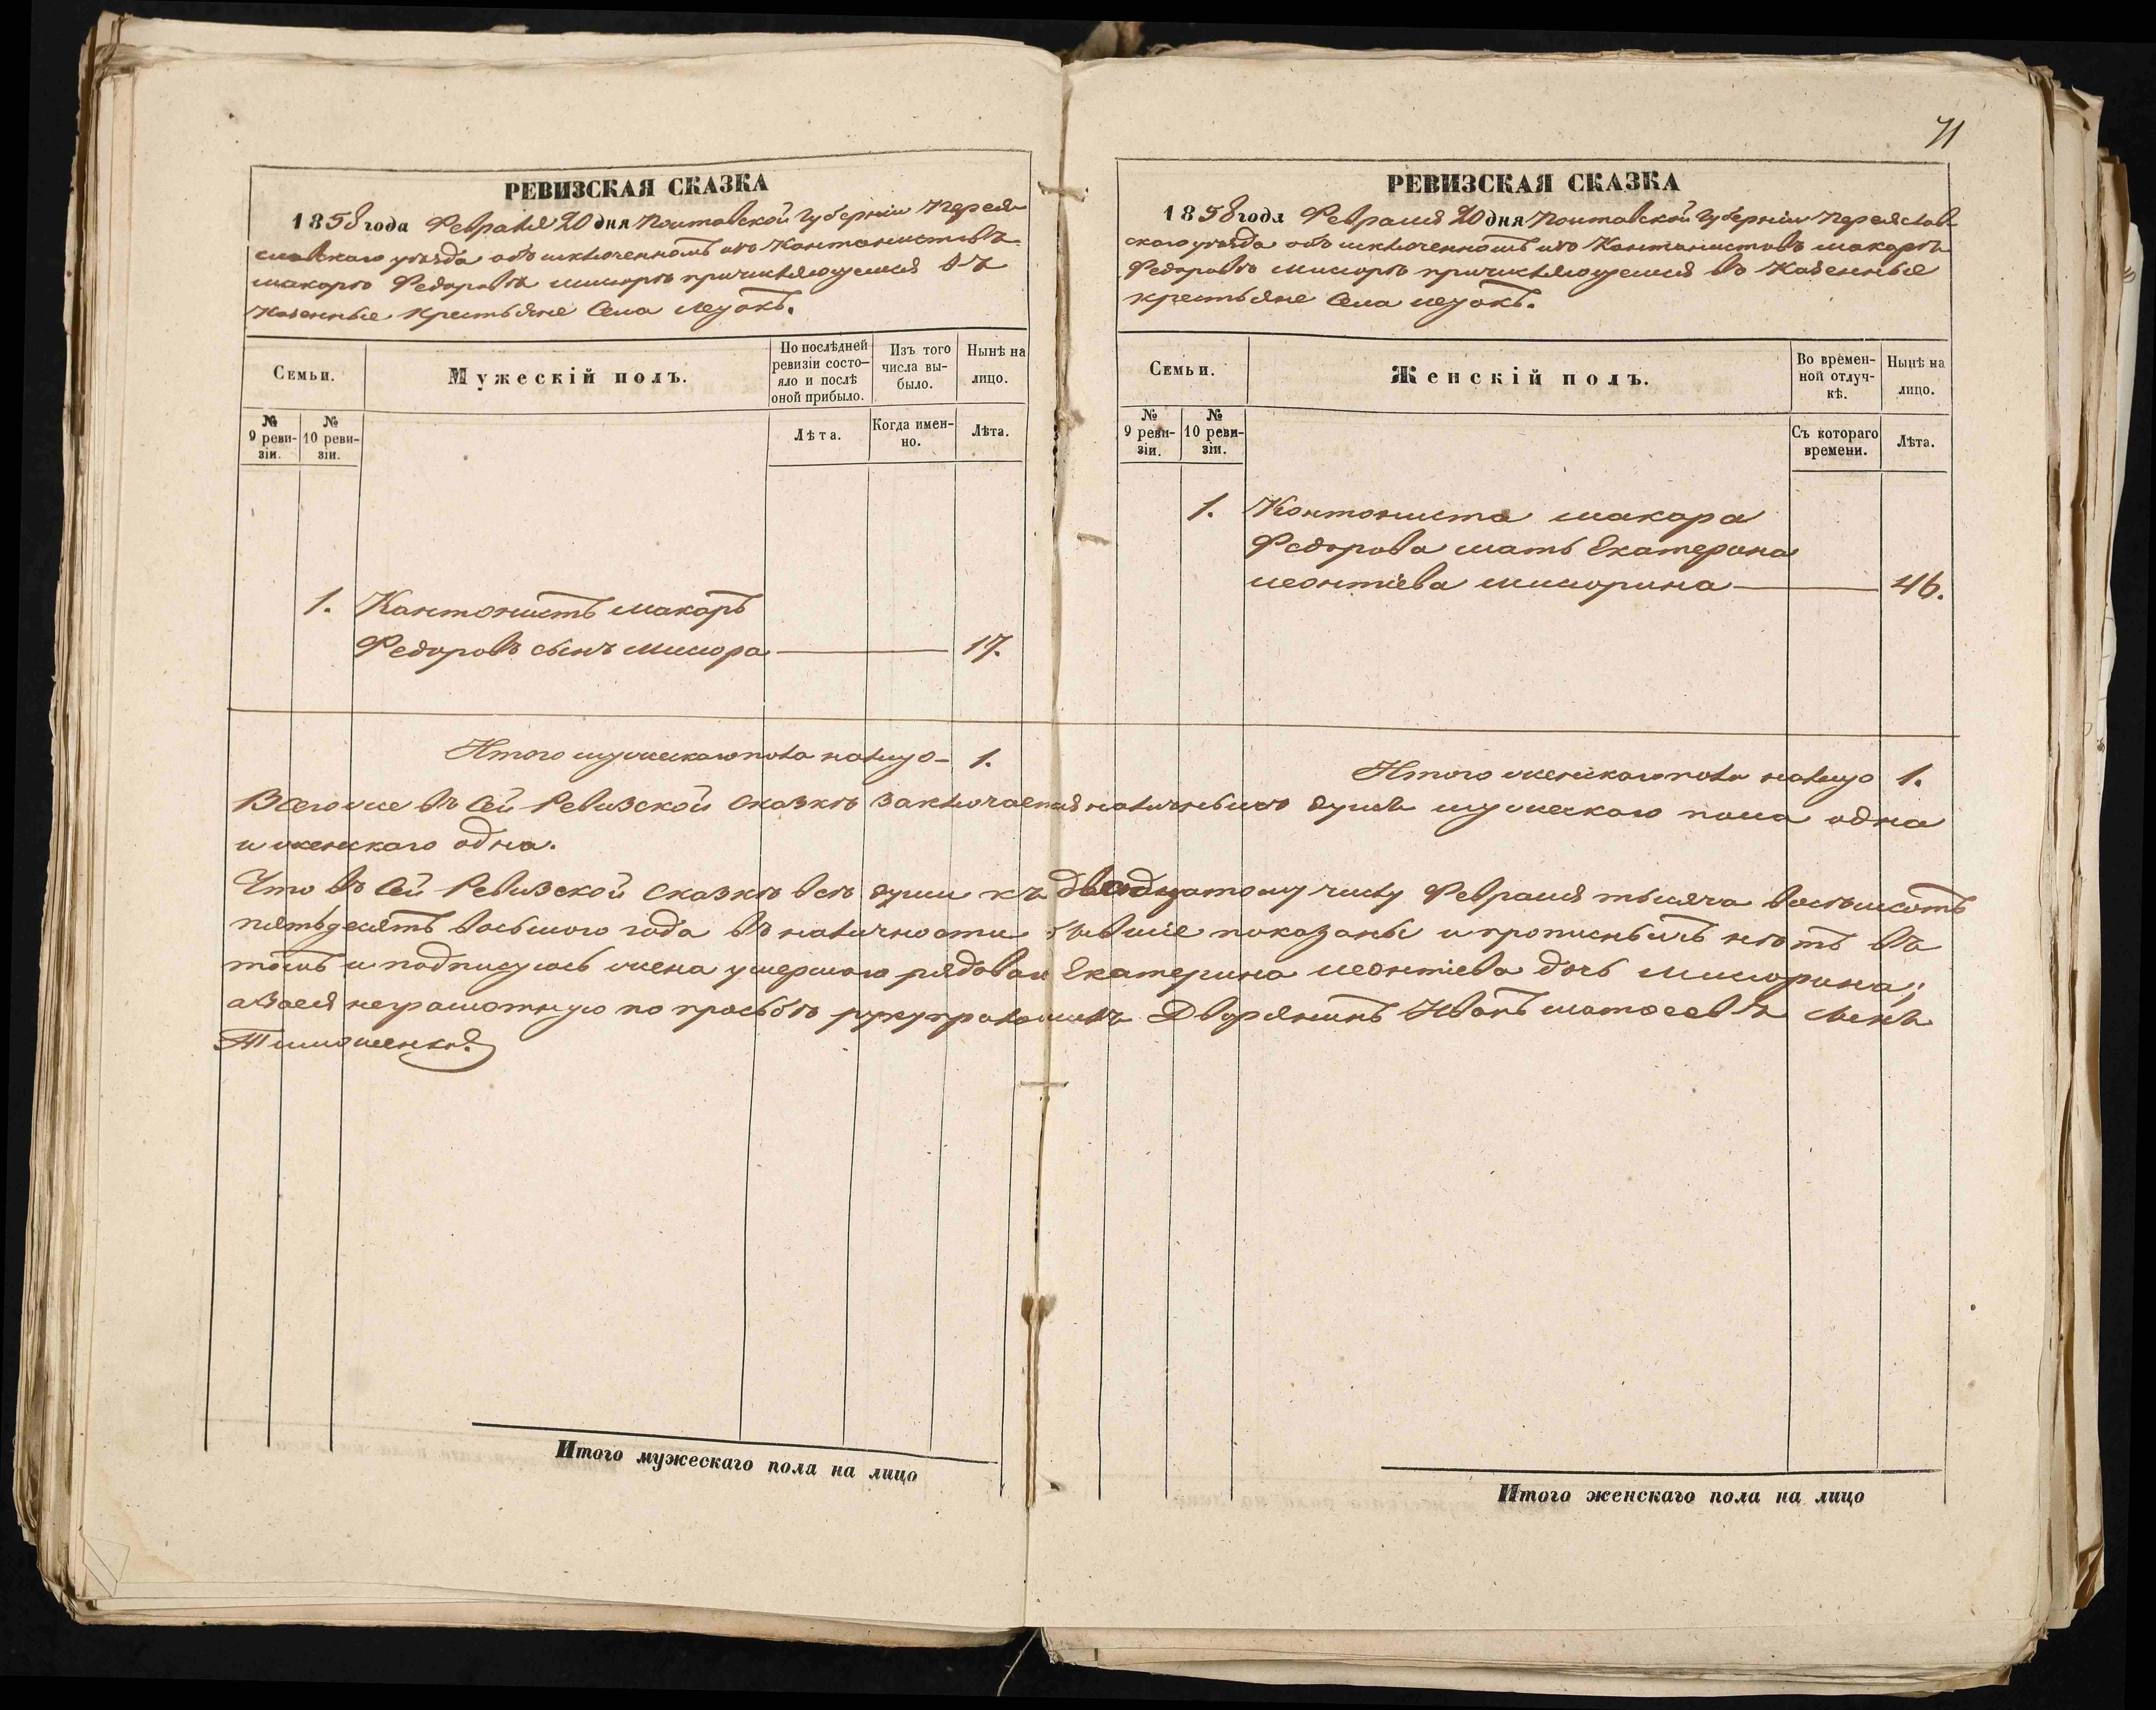 РЕВИЗСКАЯ СКАЗКА
1858 года Февраля 20 дня Полтавской Губерніи Переяс-
лавскаго уѣзда объ исключенномъ изъ Кантонистовъ
макарѣ Федоровѣ причисляющемся въ
Казенные крестьяне Села
Семьи.
Мужескій полъ.
По послѣдней ревизіи состо-яло и послѣ оной прибыло.
Изъ того числа вы-было.
Нынѣ на лицо.
№ 9 реви-зіи.
№ 10 реви-зіи.
Лѣта.
Когда имен-но.
Лѣта.
1. Кантонистъ макаръ
Федоровъ сынъ 17.
Итого мужескаго пола налицо – 1.
71
РЕВИЗСКАЯ СКАЗКА
1858 года Февраля 20 дня Полтавской Губерніи Переяслав-
скаго уѣзда объ исключенномъ изъ Кантонистовъ макарѣ
Федоровѣ причисляющемся въ Казенные
крестьяне Села
Семьи.
Женскій полъ.
Во времен-ной отлуч-кѣ.
Нынѣ на лицо.
№ 9 реви-зіи.
№ 10 реви-зіи.
Съ котораго времени.
Лѣта.
1. Контониста макара
Федорова мать Екатерина
леонтіева 46.
Итого женскаго пола налицо 1.
Всего же въ сей Ревизской сказкѣ заключается наличныхъ душъ мужескаго пола одна
и женскаго одна.
Что въ сей Ревизской сказкѣ всѣ души къ двадцатому числу Февраля тысяча восемьсотъ
пятьдесятъ восьмого года въ наличности бывшіе показаны и прописныхъ нѣтъ въ
томъ и подписуюсь жена умершаго рядоваго Екатерина леонтіева дочь
а за ея неграмотную по просьбѣ Дворянинъ Иванъ матвеевъ сынъ
Тимошенко
Итого мужескаго пола на лицо
Итого женскаго пола на лицо